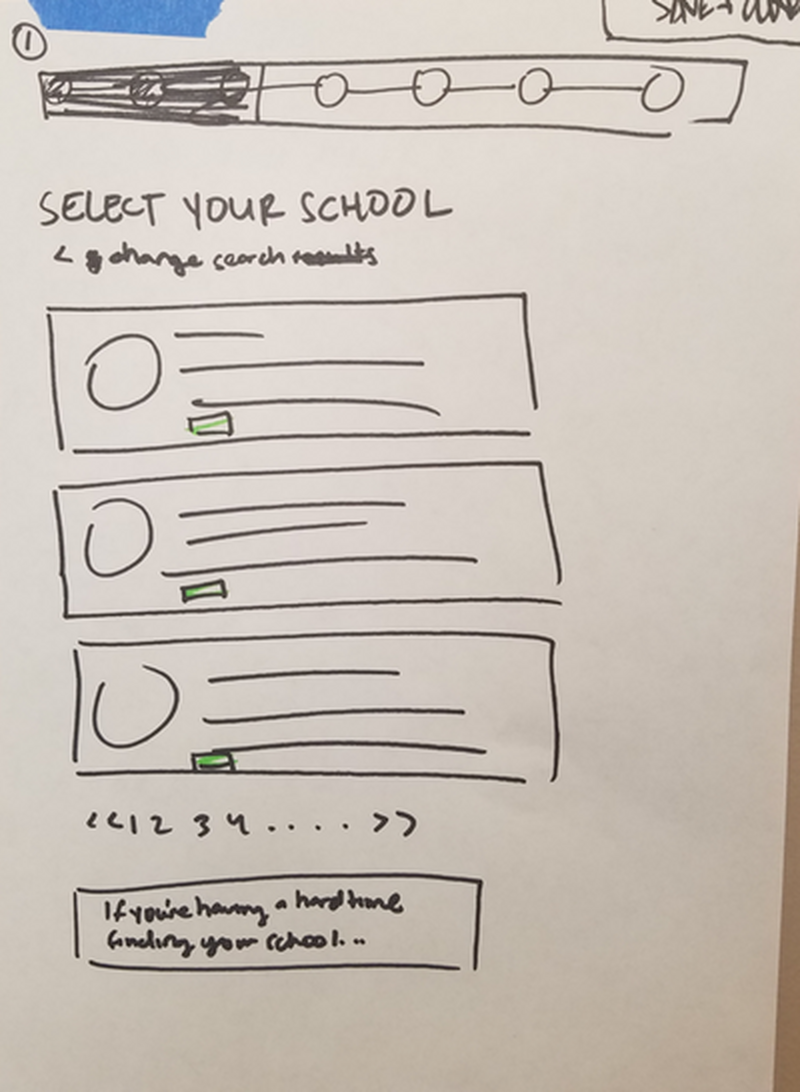 1
SELECT YOUR SCHOOL
< change search results
<<1 2 3 4 . . . . >>
If you're having a hard time
finding your school...